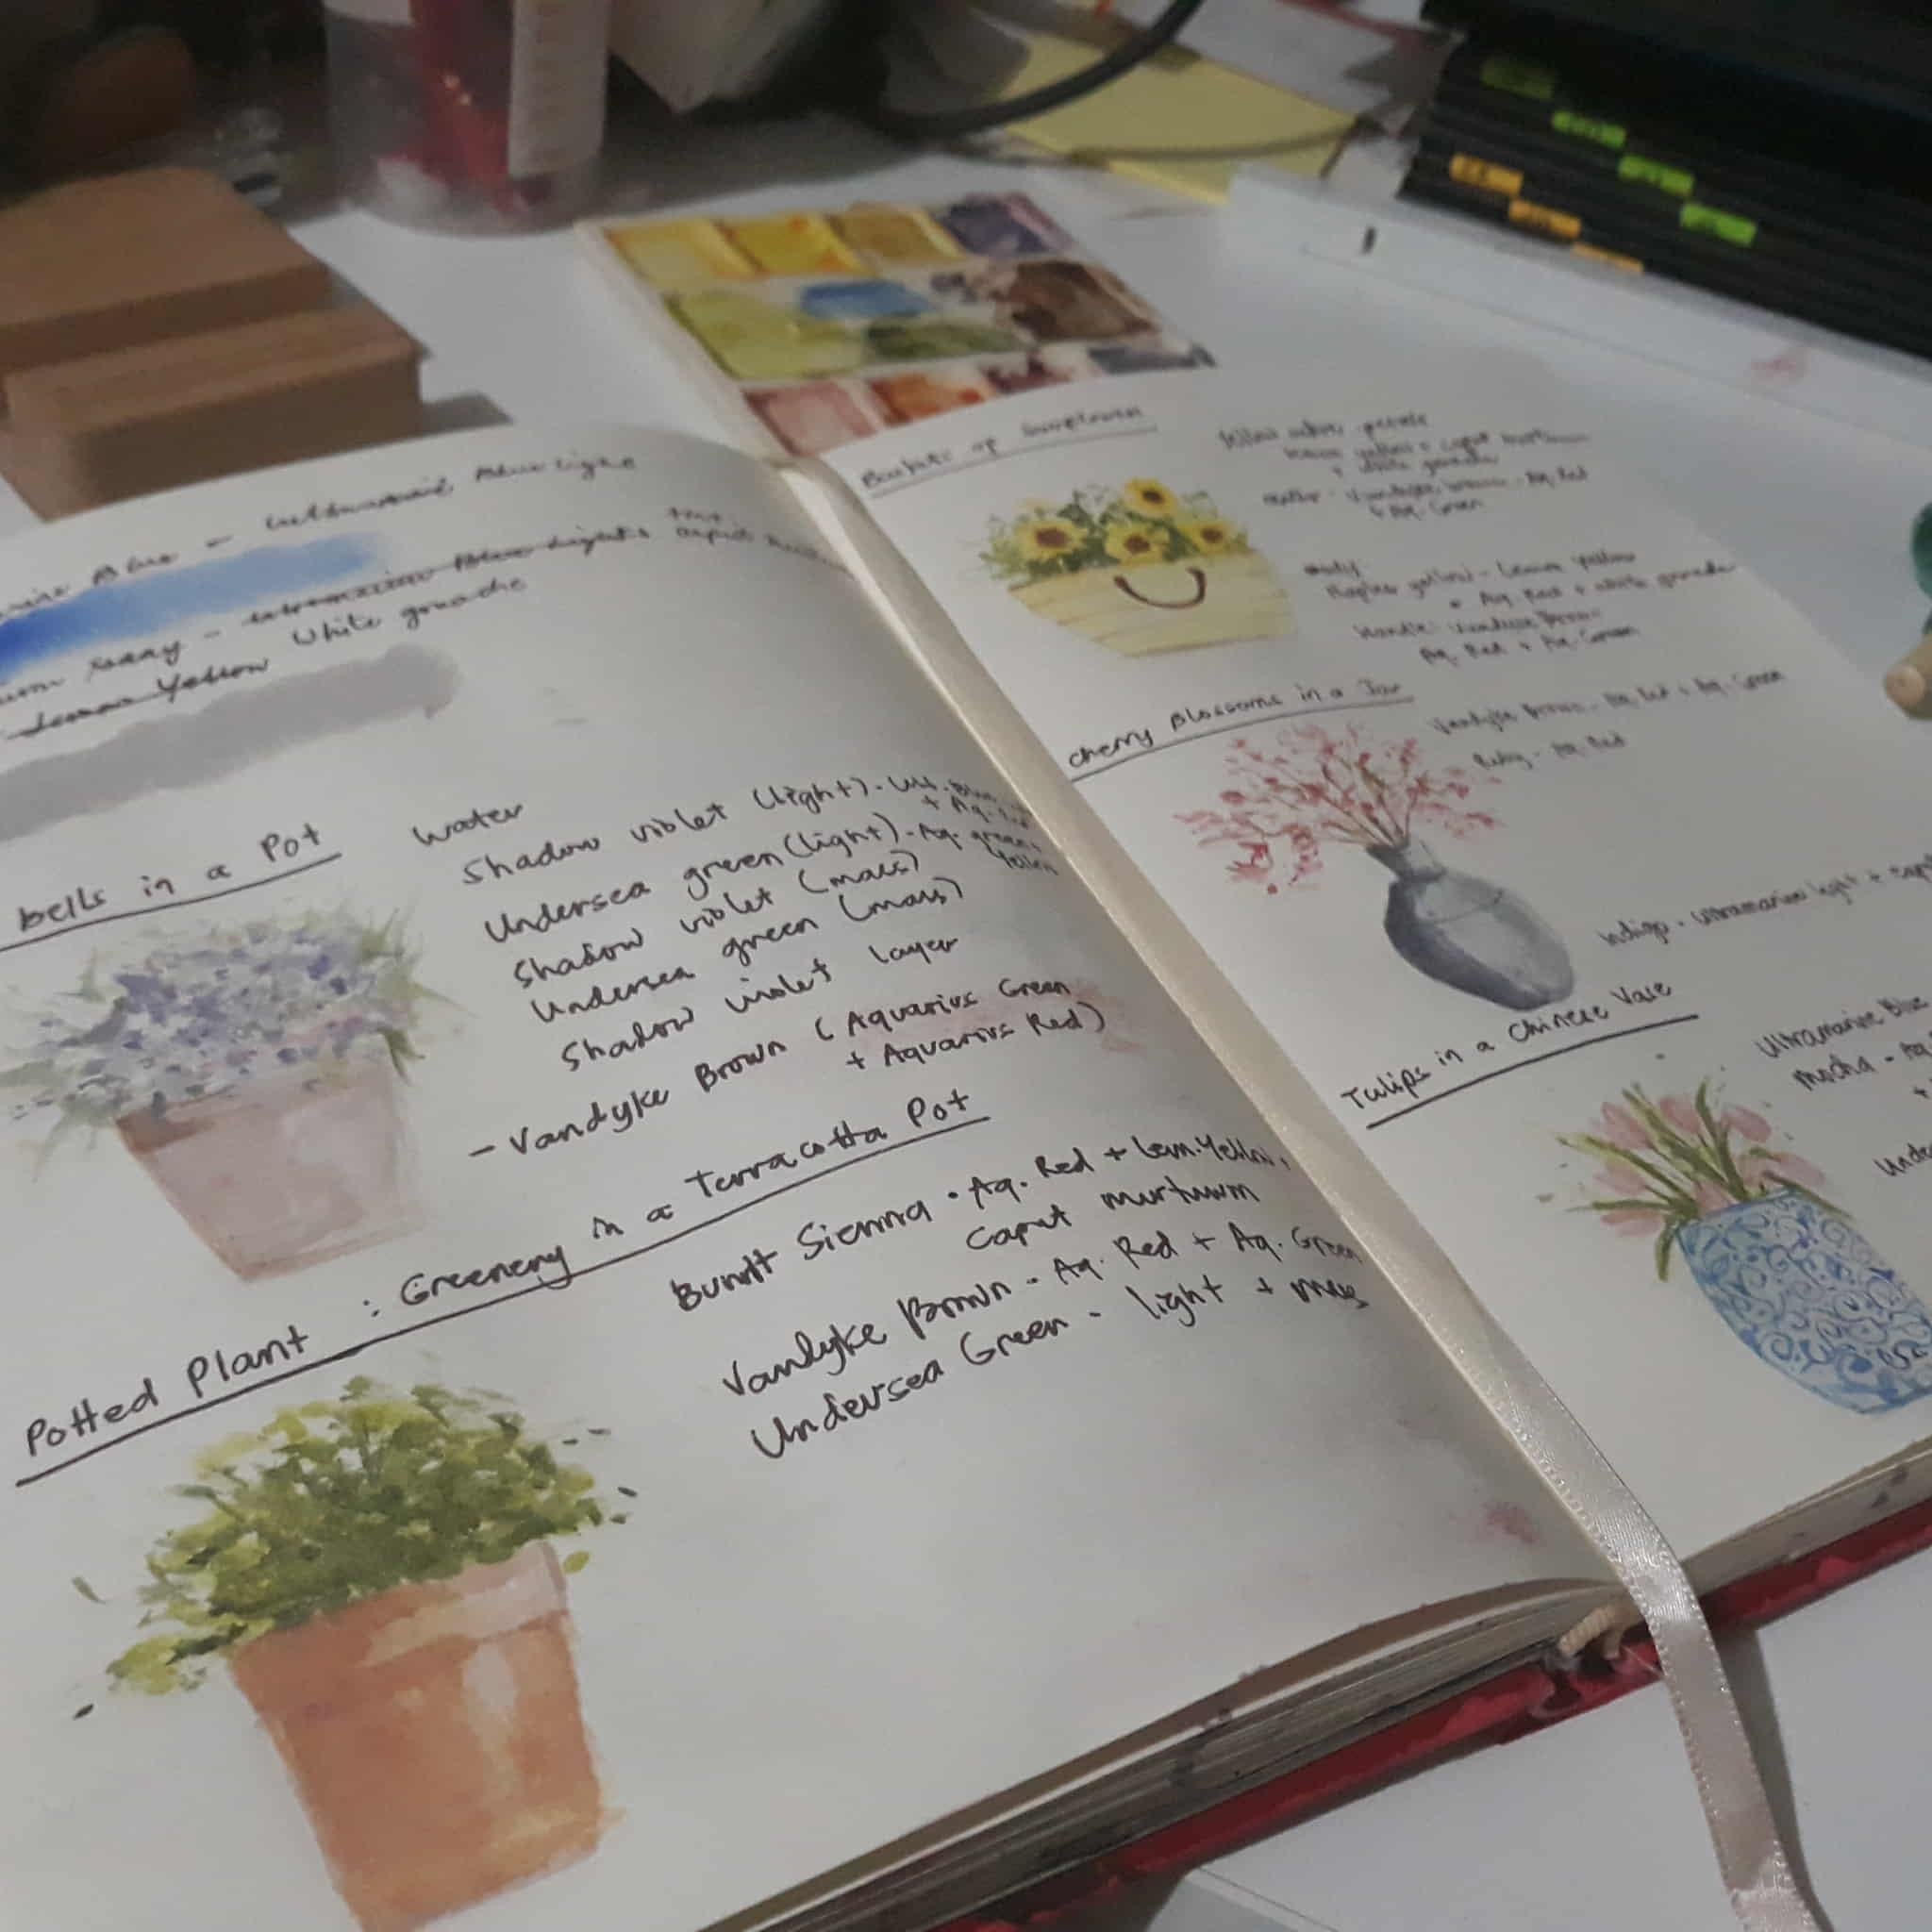 Blue - Ultramarine Blue Light
White gouache
Yellow
bells in a Pot
Water
Shadow violet (light) - Ult. Blue
+ Aq.
Undersea green (light) - Aq. green +
Yellow
Shadow violet (mass)
Undersea green (mass)
Shadow violet layer
- Vandyke Brown (Aquarius Green
+ Aquarius Red)
Potted Plant : Greenery in a Terracotta Pot
Burnt Sienna - Aq. Red + Lem. Yellow,
caput murtuum
Vandyke Brown - Aq. Red + Aq. Green
Undersea Green - light + mass
of Sunflowers
+ white gouache
Vandyke brown - Aq. Red
+ Aq. Green
Naples yellow - Lemon yellow
+ Aq. Red + white gouache
Handle: Vandyke Brown
Aq. Red + Aq. Green
Cherry Blossoms in a Jar
Vandyke Brown - Aq. Red + Aq. Green
Ruby - Aq. Red
Indigo - Ultramarine light +
Tulips in a Chinese Vase
Ultramarine Blue
mocha - Aq.
+
Under